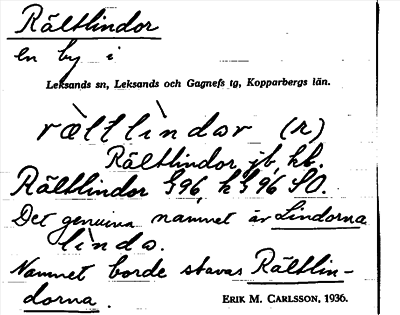 Rältlindor
en by i
Leksands sn, Leksands och Gagnefs tg, Kopparbergs län.
rältlindor (r)
Rältlindor jb, kb.
Rältlindor G96, hG96 SO.
Det genuina namnet är Lindorna
lindo.
Namnet borde stavas Rältlin-
dorna.
ERIK M. CARLSSON, 1936.